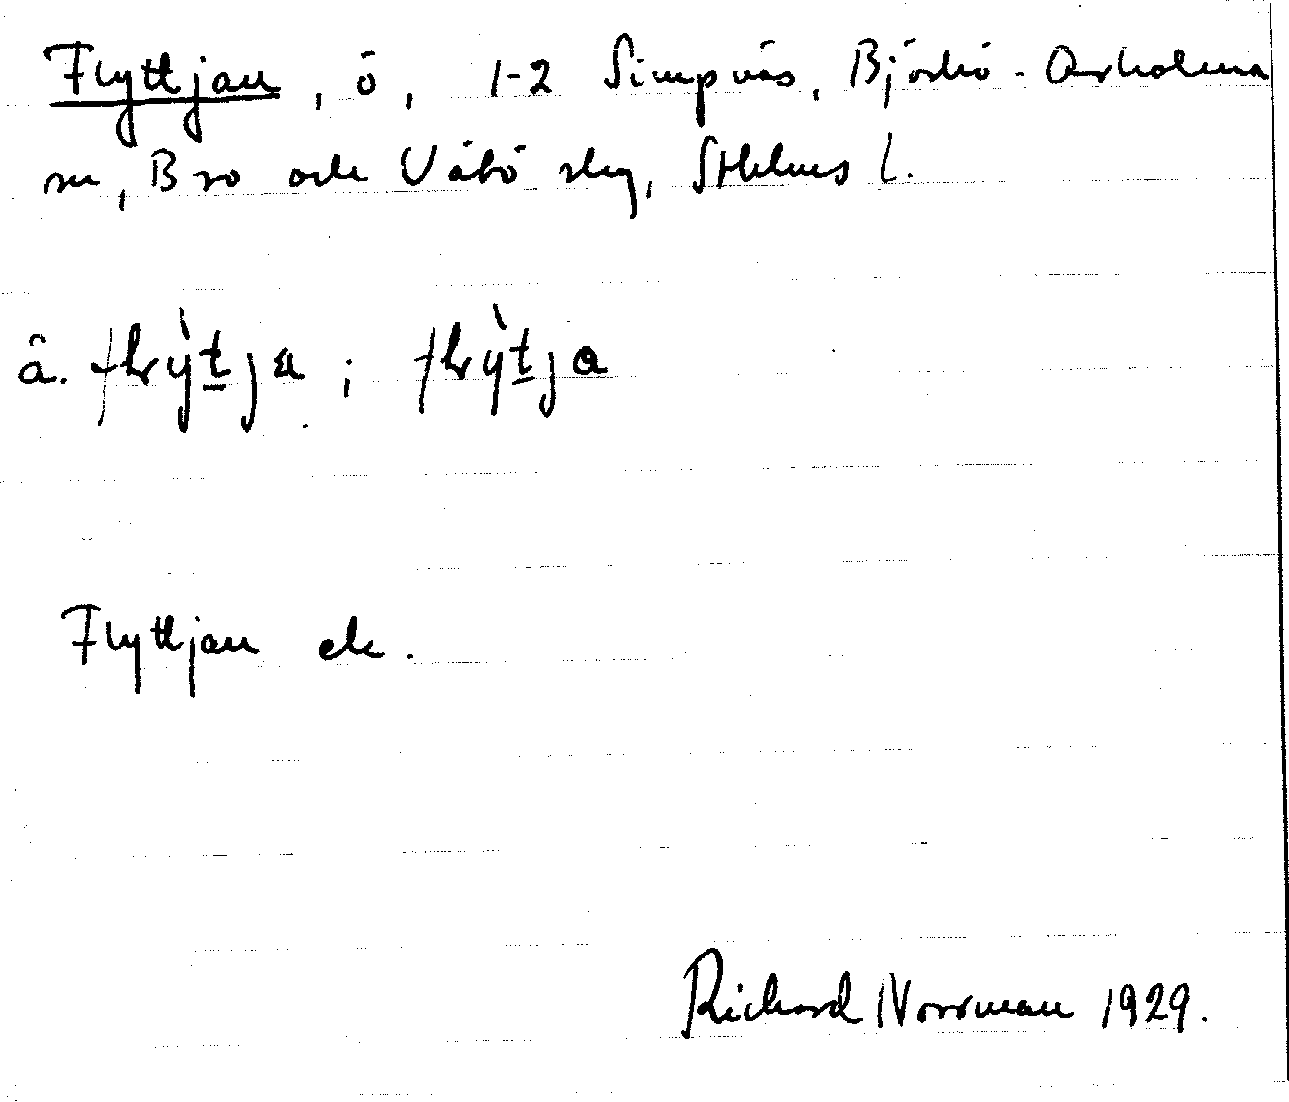 Flyttjan, ö, 1-2 Simpnäs, Björkö-Arholma
sn, Bro och Vätö slg, Sthlms l.
â. flỳtja ; flỳtja
Flyttjan ek.
Richard Norrman 1929.